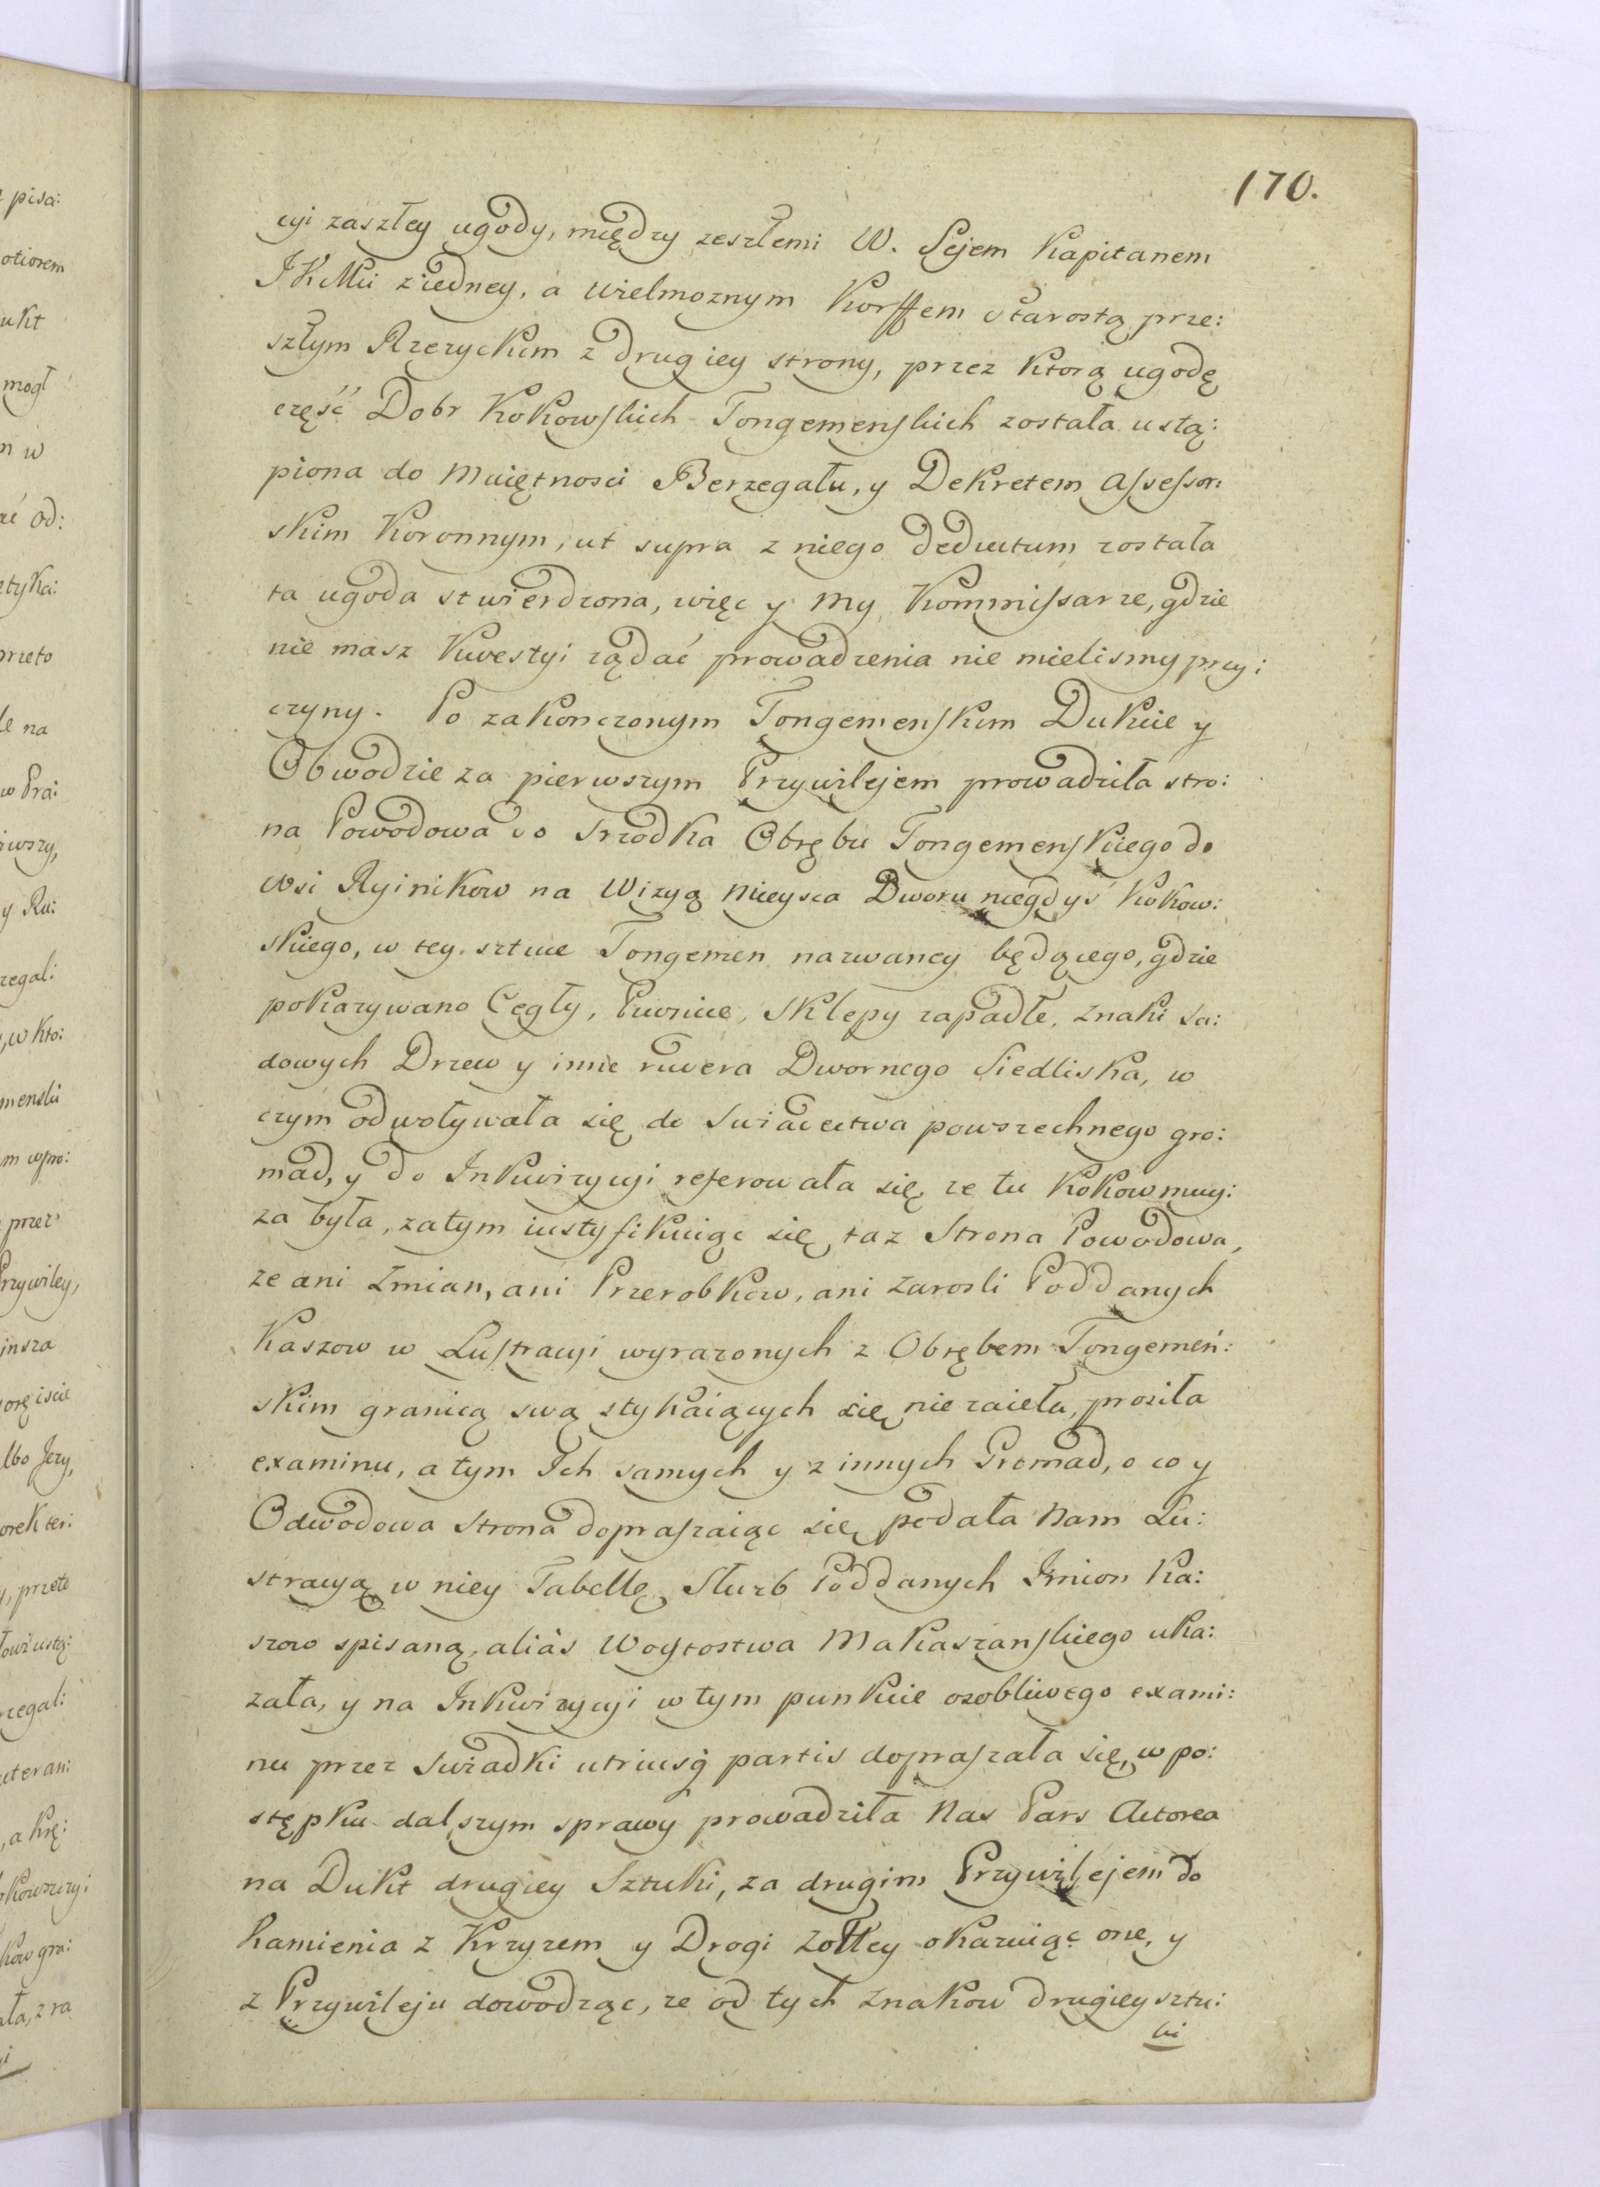 170.
cyi zaszłey ugody, między zeszłemi W. Sejem Kapitanem
JKMci z iedney, a Wielmoznym Korffem Starostą prze:
szłym Rzezyckim z drugiey strony, przez ktorą ugodę
część Dobr Kokowskich Tongemenskich została ustą:
piona do Maiętnosci Berzegału, y Dekretem Assessor:
skim Koronnym, ut supra z niego deductum została
ta ugoda stwierdzona, więc y My Kommissarze, gdzie
nie masz Kwestyi ządać prowadzenia nie mielismy przy:
czyny. Po zakonczonym Tongemenskim Dukcie y
Obwodzie za pierwszym Przywilejem prowadziła stro:
na Powodowa do Srzodka Obrębu Tongemenskiego do
wsi Ryinikow na Wizyą Mieysca Dworu niegdyś Kokow:
skiego, w tey sztuce Tongemen nazwaney będącego, gdzie
pokazywano Cegły, Piwnice, Sklepy zapadłe, znaki Sa:
dowych Drzew y inne ruwera Dwornego Siedliska, w
czym odwoływała się do Swiadectwa powszechnego gro:
mad, y do Inkwizycyi referowała się ze tu Kokowmuy:
za była, zatym iustyfikuiąc się taz Strona Powodowa,
ze ani Zmian, ani Przerobkow, ani Zarosli Poddanych
Kaszow w Lustracyi wyrazonych z Obrębem Tongemeń:
skim granicą swą stykaiących się nie zaięła, prosiła
examinu, a tym Ich samych y z innych Gromad, o co y
Odwodowa Strona dopraszaiąc się podała Nam Lu:
stracyą w niey Tabellę Słuzb Poddanych Imion Ka:
szow spisaną, aliàs Woytostwa Makaszanskiego uka:
zała, y na Inkwizycyi w tym punkcie osobliwego exami:
nu przez Swiadki utriusq partis dopraszała się, w po:
stępku dalszym sprawy prowadziła Nas Pars Actorea
na Dukt drugiey Sztuki, za drugim Przywilejem do
Kamienia z Krzyzem y Drogi Zołtey okazuiąc one, y
z Przywileju dowodząc, ze od tych Znakow drugiey sztu:
ki